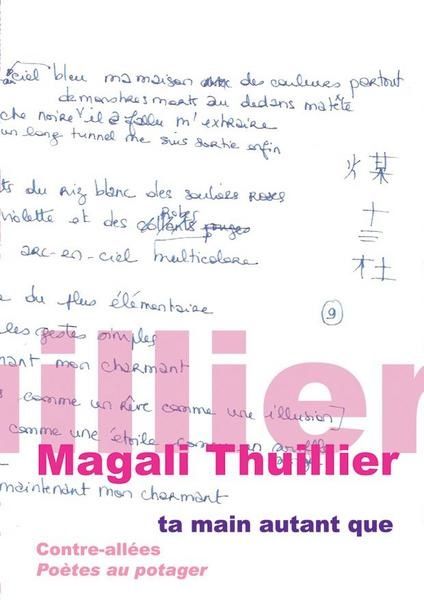 ciel bleu ma maison des couleurs partout
de monstres morts au dedans ma tête
che noire il a fallu m'extraire
un long tunnel me suis sortie enfin
ts du riz blanc des souliers roses
violette et des collants rouges
Robes
arc-en-ciel multicolore
e du plus élémentaire
9
les gestes simples
nant mon charmant
comme un rêve comme une illusion
comme une étoile comme un
maintenant mon charmant
illier
Magali Thuillier
ta main autant que
Contre-allées
Poètes au potager